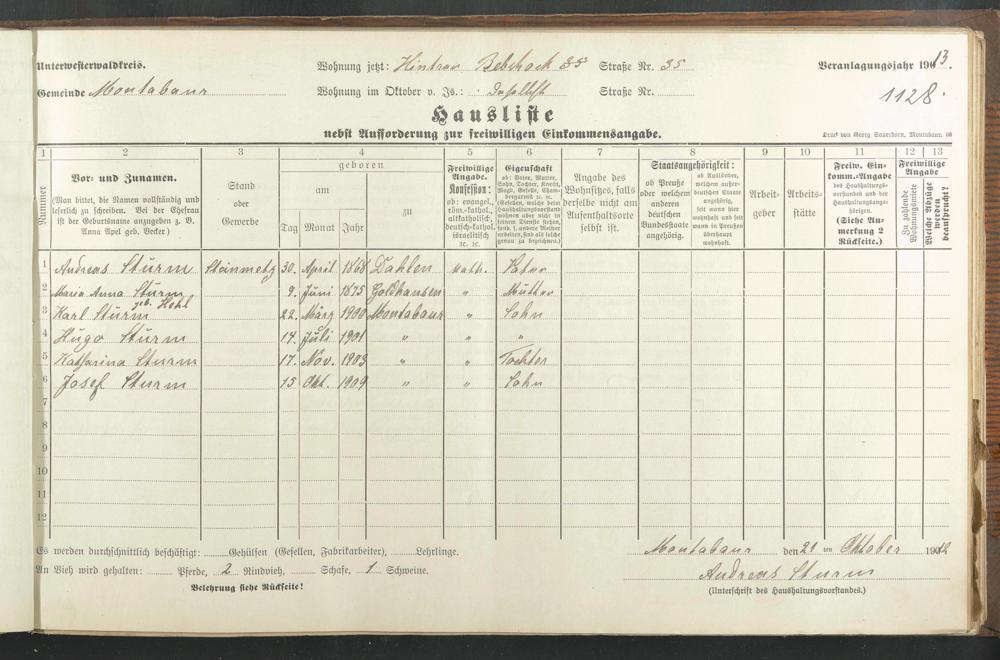 Unterwesterwaldkreis. Wohnung jetzt: Hintrer Rebstock 35 Straße Nr. 35 Veranlagungsjahr 1913.
Gemeinde Montabaur Wohnung im Oktober v. Js.: Daselbst Straße Nr. 1128.
Hausliste
nebst Aufforderung zur freiwilligen Einkommensangabe.
Druck von Georg Sauerborn, Montabaur.
1 2 3 4 5 6 7 8 9 10 11 12 13
Nummer
Vor- und Zunamen.
(Man bittet, die Namen vollständig und
leserlich zu schreiben. Bei der Ehefrau
ist der Geburtsname anzugeben z. B.
Anna Apel geb. Becker)
Stand
oder
Gewerbe
geboren
am zu
Tag Monat Jahr
Freiwillige
Angabe.
Konfession:
ob: evangel.,
röm.-kathol.,
altkatholisch,
deutsch-kathol.
israelitisch
ec. ec.
Eigenschaft
ob: Vater, Mutter,
Sohn, Tochter, Knecht,
Magd, Geselle, Cham-
Angabe des
Wohnsitzes, falls
derselbe nicht am
Aufenthaltsorte
selbst ist.
Staatsangehörigkeit:
ob Preuße
oder welchem
anderen
deutschen
Bundesstaate
angehörig.
ob Ausländer,
welchem außer-
deutschen Staate
angehörig,
seit wann hier
wohnhaft und seit
wann in Preußen
überhaupt
wohnhaft.
Arbeit-
geber
Arbeits-
stätte
Freiw. Ein-
komm.-Angabe
des Haushaltungs-
vorstandes und der
Haushaltungsange-
hörigen.
(Siehe An-
merkung 2
Rückseite.)
Freiwillige
Angabe
Zu zahlende
Wohnungsmiete
Welche Abzüge
werden
beansprucht?
1 Andreas Sturm Steinmetz 30. April 1868 Dahlen kath. Vater
2 Maria Anna Sturm geb. Hehl 9. Juni 1875 Goldhausen " Mutter
3 Karl Sturm 22. März 1900 Montabaur " Sohn
4 Hugo Sturm 14. Juli 1901 " " "
5 Katharina Sturm 17. Nov. 1903 " " Tochter
6 Josef Sturm 15 Okt. 1909 " " Sohn
7
8
9
10
11
12
Es werden durchschnittlich beschäftigt: Gehülfen (Gesellen, Fabrikarbeiter), Lehrlinge. Montabaur den 21 ten Oktober 1912
An Vieh wird gehalten: Pferde, 2 Rindvieh, Schafe, 1 Schweine. Andreas Sturm
Belehrung siehe Rückseite! (Unterschrift des Haushaltungsvorstandes.)